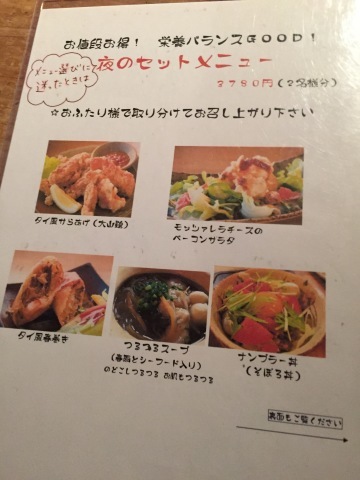 お値段お得！　栄養バランスGOOD！
メニュー選びに
迷ったときは
夜のセットメニュー
3780円（2名様分）
☆おふたり様で取り分けてお召し上がり下さい
タイ風からあげ（大山鶏）
モッツァレラチーズの
ベーコンサラダ
タイ風春巻き
つるつるスープ
（春雨とシーフード入り）
のどごしつるつる お肌もつるつる
ナンプラー丼
（そぼろ丼）
裏面もご覧ください